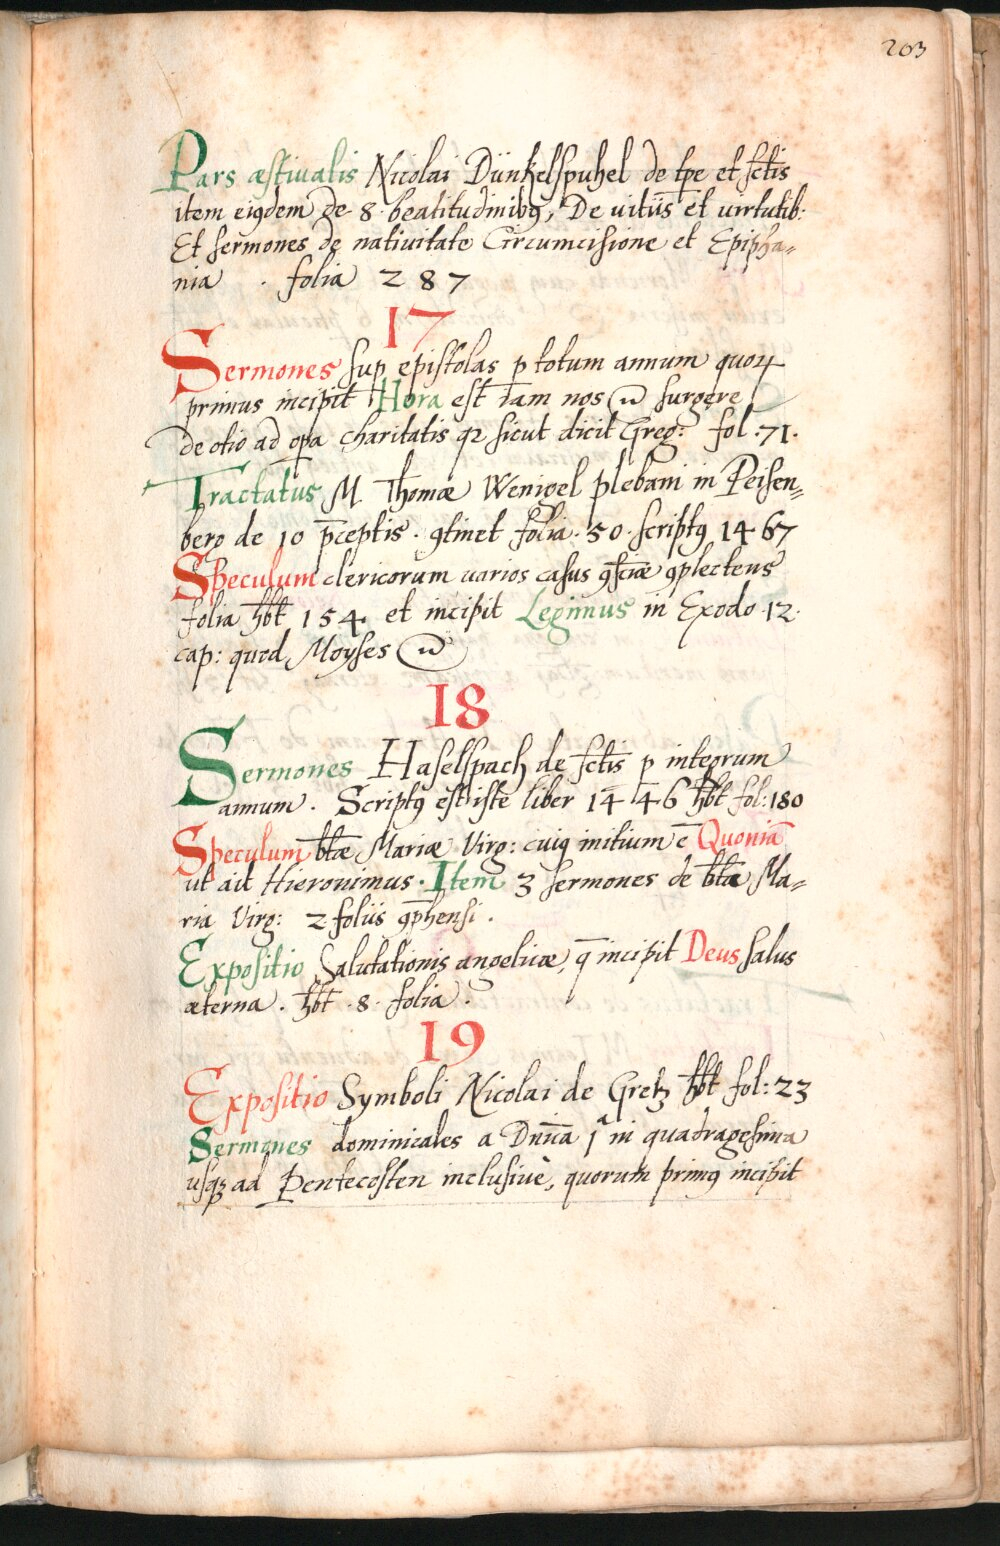 203
Pars æstiualis Nicolai Dünkelspuhel de tp̄e et sctīs
item eiꝯdem de 8. beatitudinibꝯ, De uitiis et virtutib:
Et sermones de natiuitate Circumcisione et Epipha=
nia . folia 287
17
Sermones sup epistolas p totum annum quoꝝ
primus incipit Hora est iam nos surgere
de otio ad opa charitatis qꝛ sicut dicit Greg: fol .71.
Tractatus M. Thomæ Wenigel plebani in Peisen=
berg de 10 p̄ceptis . ꝯtinet folia . 50 . scriptꝯ 1467
Speculum clericorum uarios casus ꝯsciæ ꝯplectens
folia hb̄t 154 et incipit Legimus in Exodo 12.
cap: quod Moyses
18
Sermones Haselspach de sctīs p integrum
annum . Scriptꝯ est iste liber 1446 hb̄t fol: 180
Speculum bt̄æ Mariæ Virg: cuiꝯ initium ē Quoniā
ut ait Hieronimus . Item 3 sermones de bt̄a Ma=
ria Virg: 2 foliis ꝯp̄hensi .
Expositio Salutationis angelicæ, q̄ incipit Deus salus
æterna . hb̄t . 8 . folia .
19
Expositio Symboli Nicolai de Gretz hb̄t fol: 23
Sermones dominicales a Dn̄ica 1ª in quadragesima
usqꝫ ad Pentecosten inclusiuè, quorum primꝯ incipit